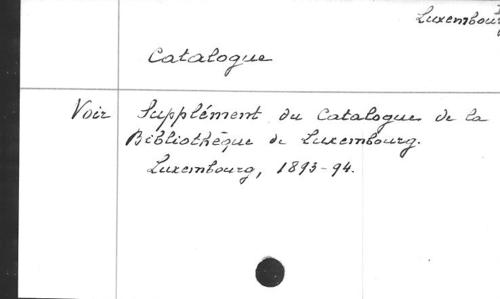 Luxembourg
Catalogue
Voir Supplément du Catalogue de la
Bibliothèque de Luxembourg.
Luxembourg, 1893-94.